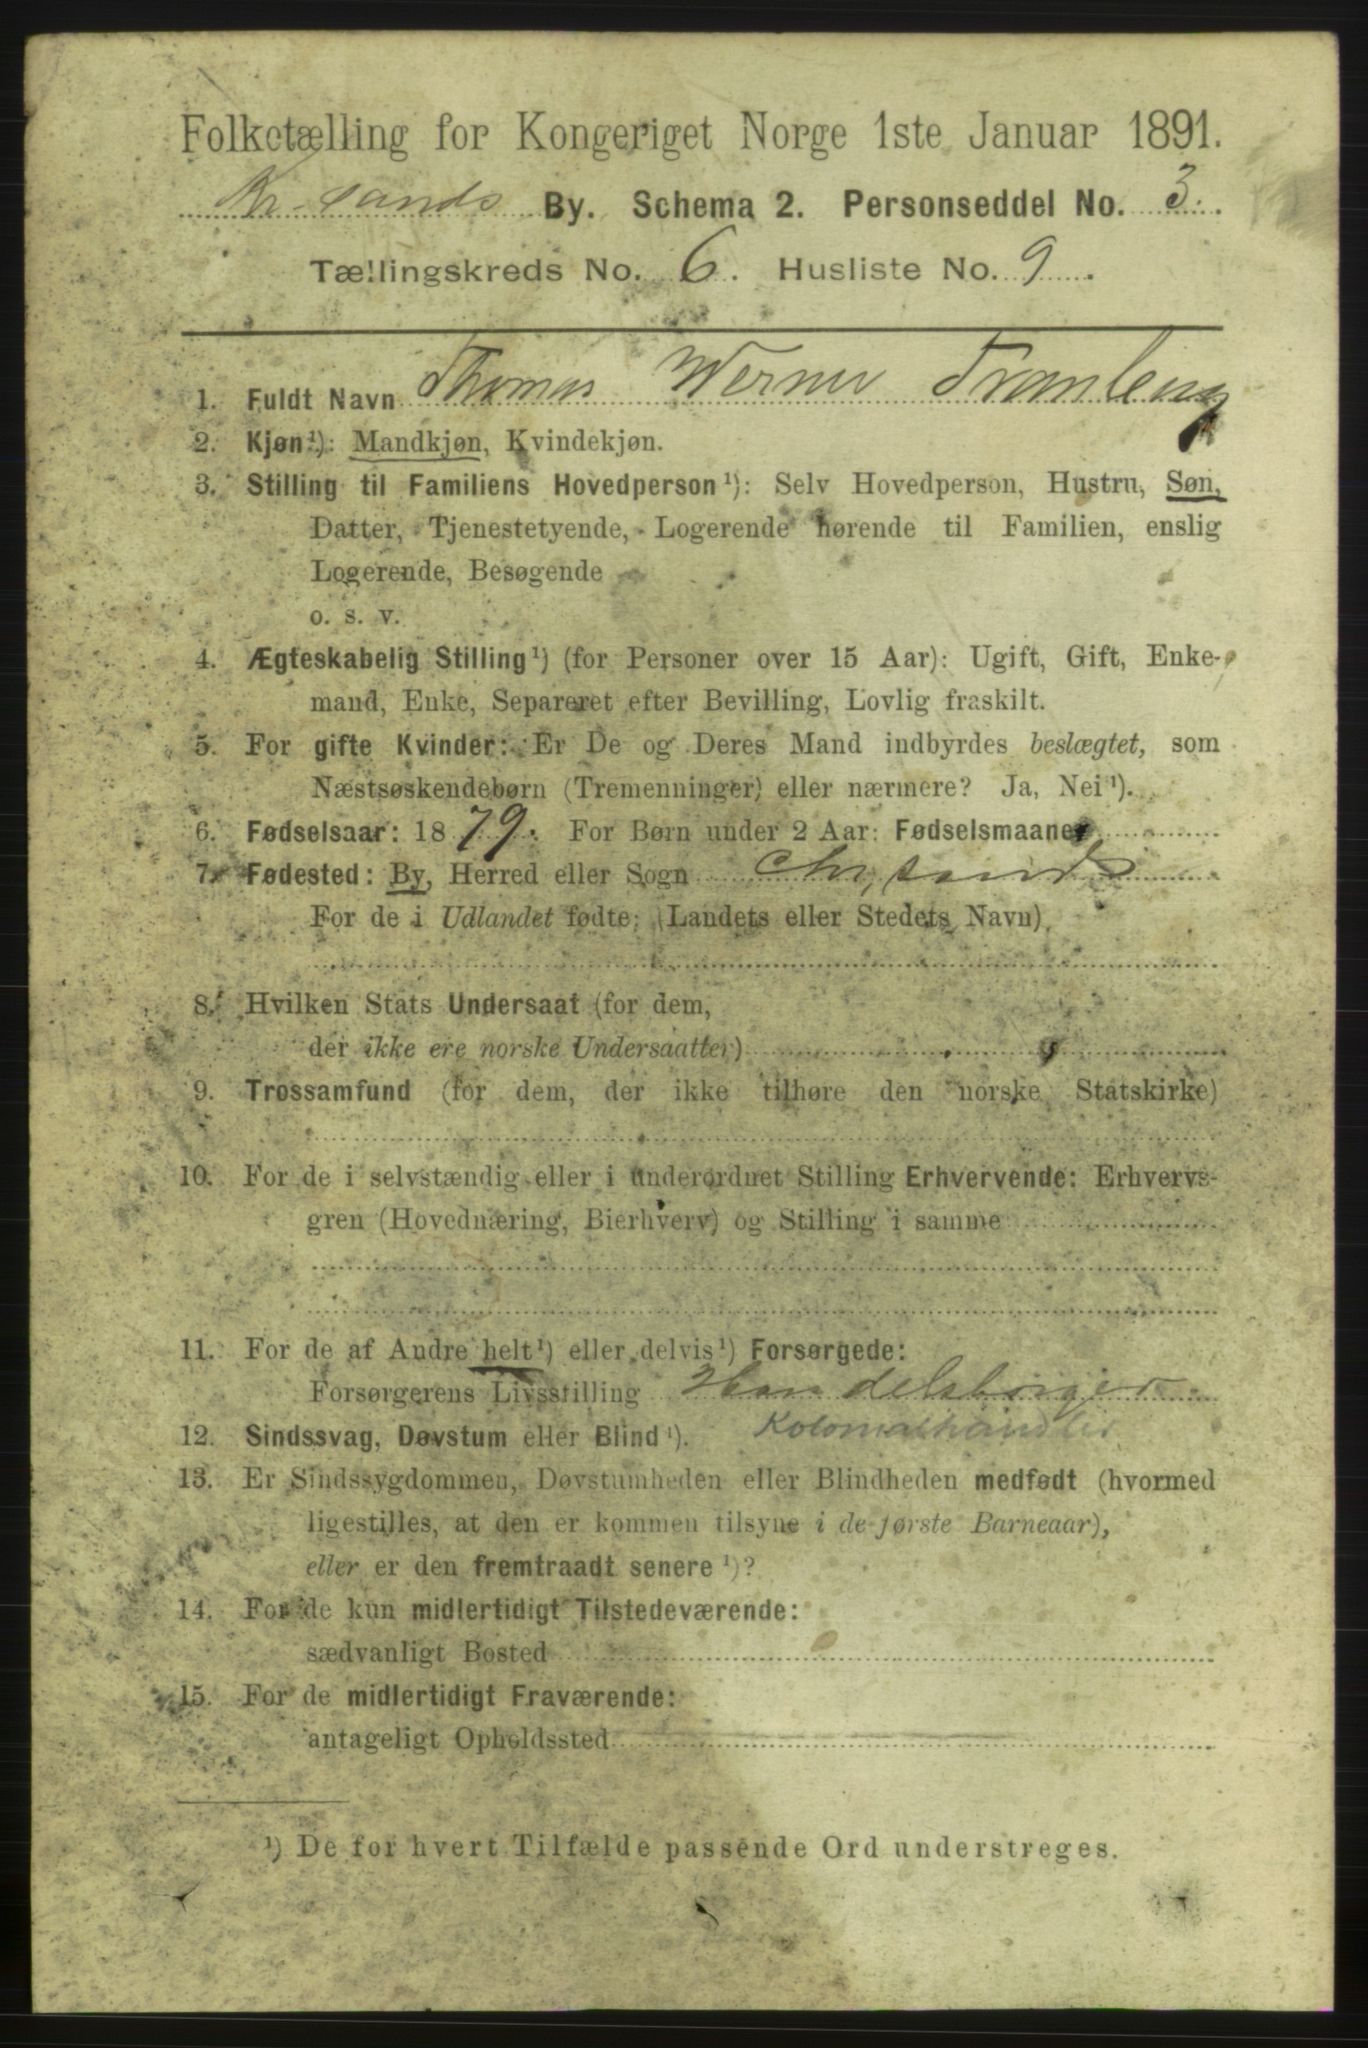 Folketælling for Kongeriget Norge 1ste Januar 1891.
Kr. sands By. Schema 2. Personseddel No. 3.
Tællingskreds No. 6. Husliste No. 9.
1. Fuldt Navn Thomas Werner
2. Kjøn¹): Mandkjøn, Kvindekjøn.
3. Stilling til Familiens Hovedperson¹): Selv Hovedperson, Hustru, Søn,
Datter, Tjenestetyende, Logerende hørende til Familien, enslig
Logerende, Besøgende
o. s. v.
4. Ægteskabelig Stilling¹) (for Personer over 15 Aar): Ugift, Gift, Enke-
mand, Enke, Separeret efter Bevilling, Lovlig fraskilt.
5. For gifte Kvinder: Er De og Deres Mand indbyrdes beslægtet, som
Næstsøskendebørn (Tremenninger) eller nærmere? Ja, Nei¹).
6. Fødselsaar: 1879. For Børn under 2 Aar: Fødselsmaaned
7. Fødested: By, Herred eller Sogn Chr, sands
For de i Udlandet fødte: (Landets eller Stedets Navn)
8. Hvilken Stats Undersaat (for dem,
der ikke ere norske Undersaatter)
9. Trossamfund (for dem, der ikke tilhøre den norske Statskirke)
10. For de i selvstændig eller i underordnet Stilling Erhvervende: Erhvervs-
gren (Hovednæring, Bierhverv) og Stilling i samme
11. For de af Andre helt¹) eller delvis¹) Forsørgede:
Forsørgerens Livsstilling Handelsborger
12. Sindssvag, Døvstum eller Blind¹). Kolonialhandler
13. Er Sindssygdommen, Døvstumheden eller Blindheden medfødt (hvormed
ligestilles, at den er kommen tilsyne i de første Barneaar),
eller er den fremtraadt senere¹)?
14. For de kun midlertidigt Tilstedeværende:
sædvanligt Bosted
15. For de midlertidigt Fraværende:
antageligt Opholdssted
¹) De for hvert Tilfælde passende Ord understreges.